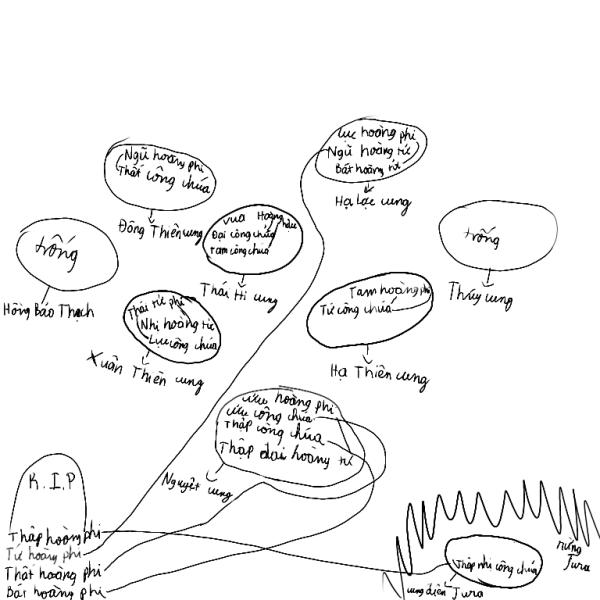 Lục hoàng phi
Ngũ hoàng tử
Bát hoàng tử
Hạ Lạc cung
Ngũ hoàng phi
Thất công chúa
Đông Thiên cung
vua Hoàng hậu
Đại công chúa
Tam công chúa
Thái Hi cung
trống
Thúy cung
trống
Hồng Bảo Thạch
Thái tử phi
Nhị hoàng tử
Lục công chúa
Xuân Thiên cung
Tam hoàng phi
Tứ công chúa
Hạ Thiên cung
Cửu hoàng phi
Cửu công chúa
Thập công chúa
Thập đại hoàng tử
Nguyệt cung
R.I.P
Thập hoàng phi
Tứ hoàng phi
Thất hoàng phi
Bát hoàng phi
rừng Jura
Thập nhị công chúa
cung điện Jura